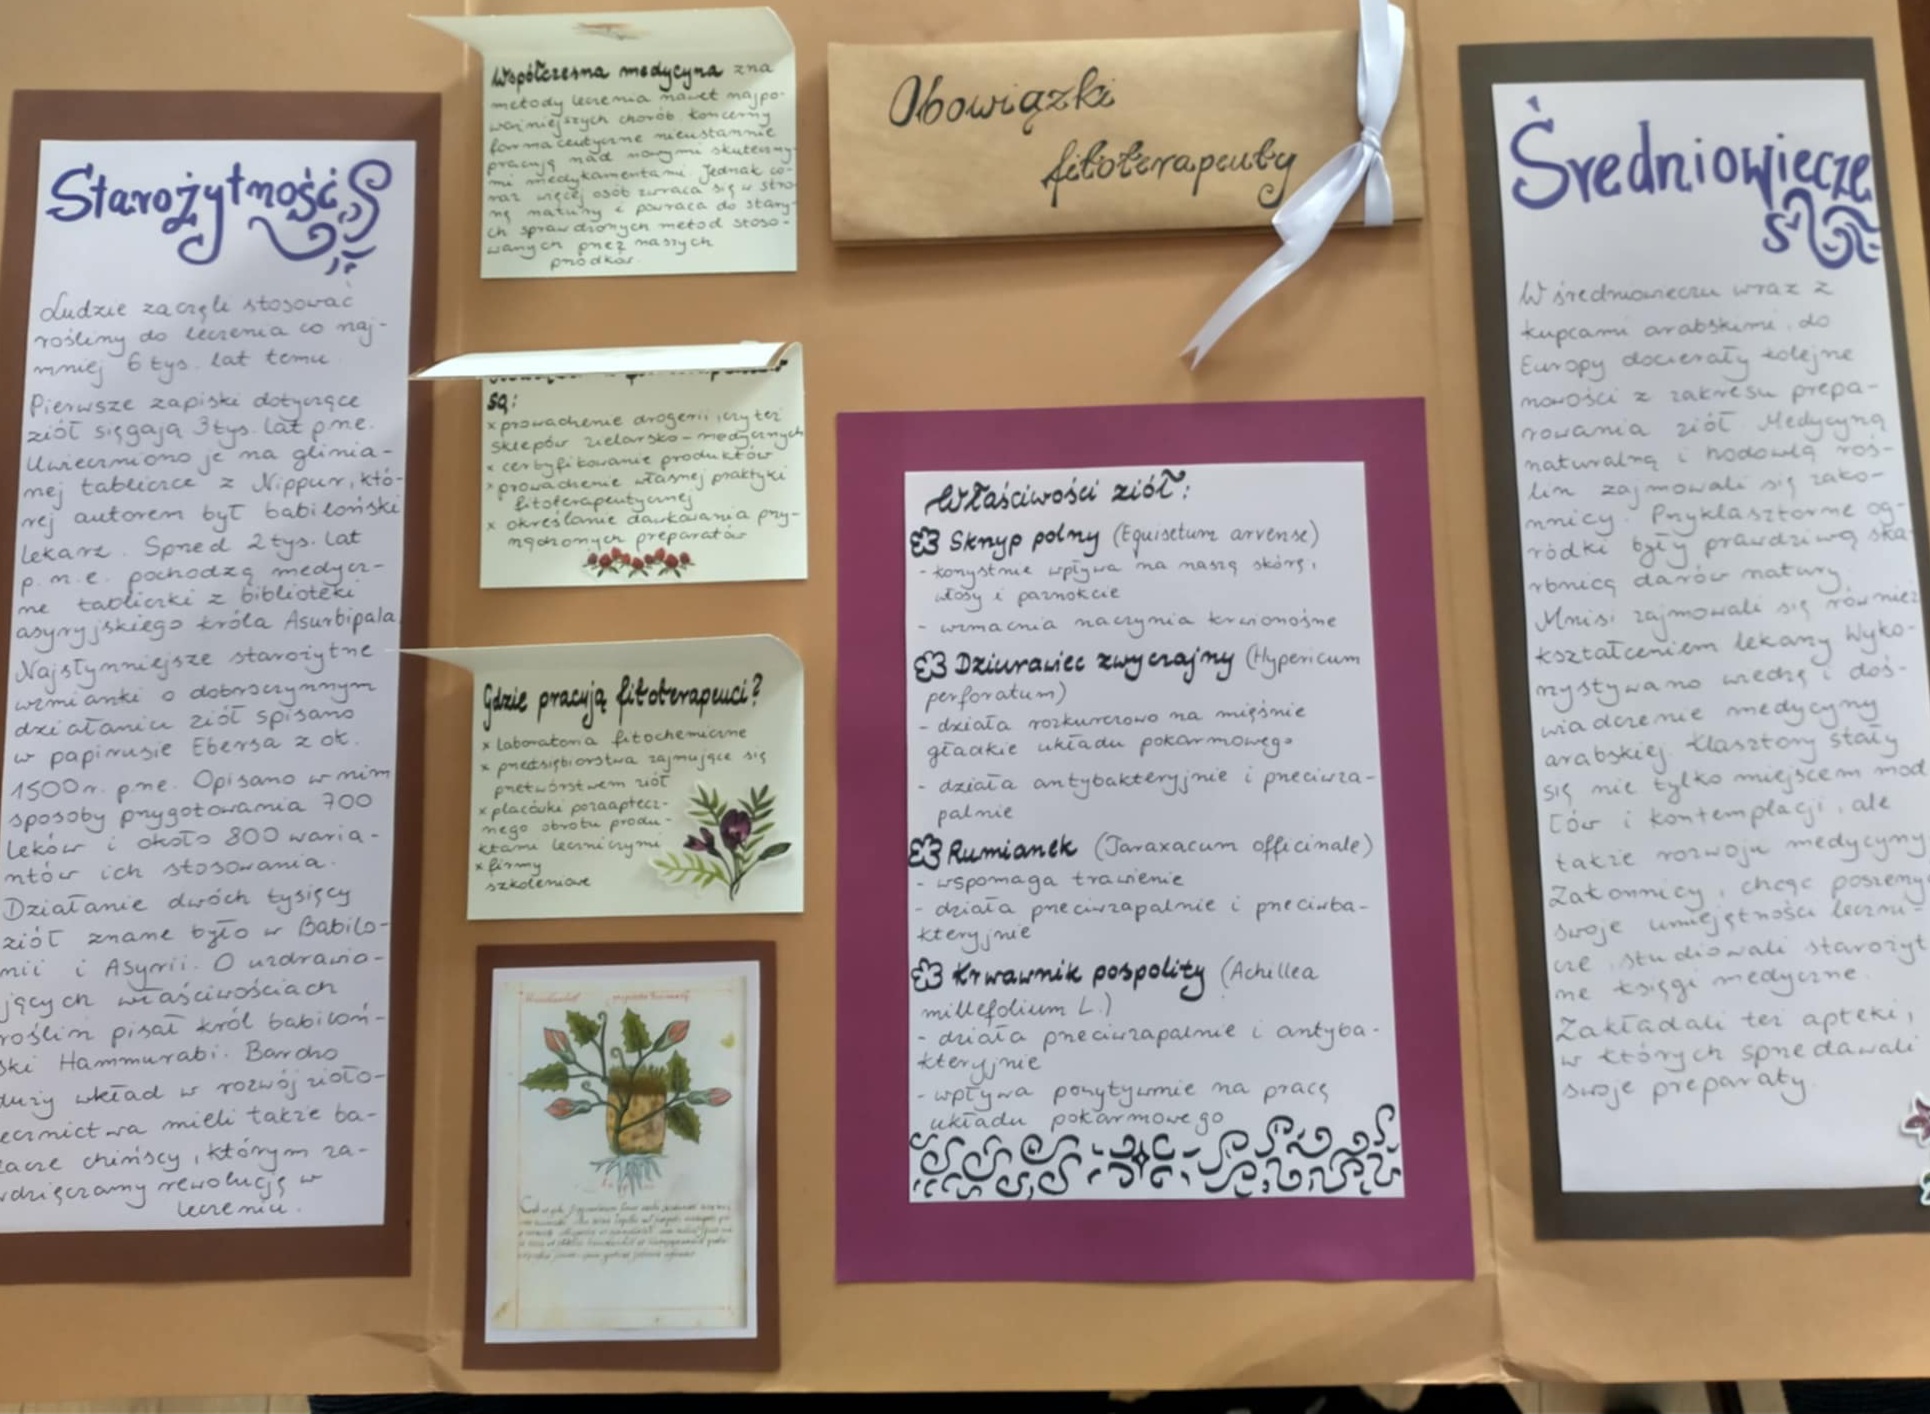 Starożytność
Ludzie zaczęli stosować
rośliny do leczenia co naj-
mniej 6 tys. lat temu.
Pierwsze zapiski dotyczące
ziół sięgają 3 tys. lat p.n.e.
Uwieczniono je na glinia-
nej tabliczce z Nippur, któ-
rej autorem był babiloński
lekarz. Sprzed 2 tys. lat
p.n.e. pochodzą medycz-
ne tabliczki z biblioteki
asyryjskiego króla Asurbipala
Najsłynniejsze starożytne
wzmianki o dobroczynnym
działaniu ziół spisano
w papirusie Ebersa z ok.
1500 r. p.n.e. Opisano w nim
sposoby przygotowania 700
leków i około 800 waria-
ntów ich stosowania.
Działanie dwóch tysięcy
ziół znane było w Babilo-
nii i Asyrii. O uzdrawia-
jących właściwościach
roślin pisał król babiloń-
ski Hammurabi. Bardzo
duży wkład w rozwój zioło-
ecznictwa mieli także ba-
acze chińscy, którym za-
wdzięczamy rewolucję w
leczeniu.
Współczesna medycyna zna
metody leczenia nawet najpo-
ważniejszych chorób. Koncerny
farmaceutyczne nieustannie
pracują nad nowymi skuteczny-
mi medykamentami. Jednak co-
raz więcej osób zwraca się w stro-
nę natury i powraca do stary-
ch sprawdzonych metod stoso-
wanych przez naszych
przodków.
są:
x prowadzenie drogerii, czy też
sklepów zielarsko-medycznych
x certyfikowanie produktów
x prowadzenie własnej praktyki
fitoterapeutycznej
x określanie dawkowania przy-
rządzonych preparatów
Gdzie pracują fitoterapeuci?
x laboratoria fitochemiczne
x przedsiębiorstwa zajmujące się
przetwórstwem ziół
x placówki pozaaptecz-
nego obrotu produ-
ktami leczniczymi
x firmy
szkoleniowe
Obowiązki
fitoterapeuty
Właściwości ziół:
Skrzyp polny (Equisetum arvense)
- korzystnie wpływa na naszą skórę,
włosy i paznokcie
- wzmacnia naczynia krwionośne
Dziurawiec zwyczajny (Hypericum
perforatum)
- działa rozkurczowo na mięśnie
gładkie układu pokarmowego
- działa antybakteryjnie i przeciwza-
palnie
Rumianek (Taraxacum officinale)
- wspomaga trawienie
- działa przeciwzapalnie i przeciwba-
kteryjnie
Krwawnik pospolity (Achillea
millefolium L.)
- działa przeciwzapalnie i antyba-
kteryjnie
- wpływa pozytywnie na pracę
układu pokarmowego
Średniowiecze
W średniowieczu wraz z
kupcami arabskimi, do
Europy docierały kolejne
nowości z zakresu prepa-
rowania ziół. Medycyną
naturalną i hodowlą roś-
lin zajmowali się zako-
nnicy. Przyklasztorne og-
ródki były prawdziwą ska-
rbnicą darów natury.
Mnisi zajmowali się również
kształceniem lekarzy. Wyko-
rzystywano wiedzę i doś-
wiadczenie medycyny
arabskiej. Klasztory stały
się nie tylko miejscem mod
łów i kontemplacji, ale
także rozwoju medycyny
Zakonnicy, chcąc poszerzy
swoje umiejętności leczni-
cze, studiowali starożyt
ne księgi medyczne.
Zakładali też apteki,
w których sprzedawali
swoje preparaty.